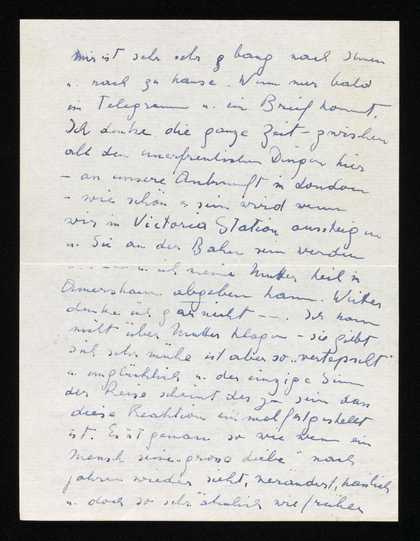 mir ist sehr sehr bang nach Ihnen
u. nach zu hause. Wenn nur bald
ein Telegramm u. ein Brief kommt.
Ich denke die ganze Zeit - zwischen
all den unerfreulichen Dingen hier
- an unsere Ankunft in London
- wie schön es sein wird wenn
wir in Victoria Station aussteigen
u. Sie an der Bahn sein werden
u. ich meine Mutter heil in
Amersham abgeben kann. Weiter
denke ich gar nicht --. Ich kann
nicht über Mutter klagen - sie gibt
sich sehr mühe ist aber so "vertepscht"
u. unglücklich u. der einzige Sinn
der Reise scheint der zu sein dass
diese Reaktion einmal festgestellt
ist. Es ist genau so wie wenn ein
Mensch seine "grosse Liebe" nach
Jahren wieder sieht, verändert, hässlich
u. doch so sehr ähnlich wie früher